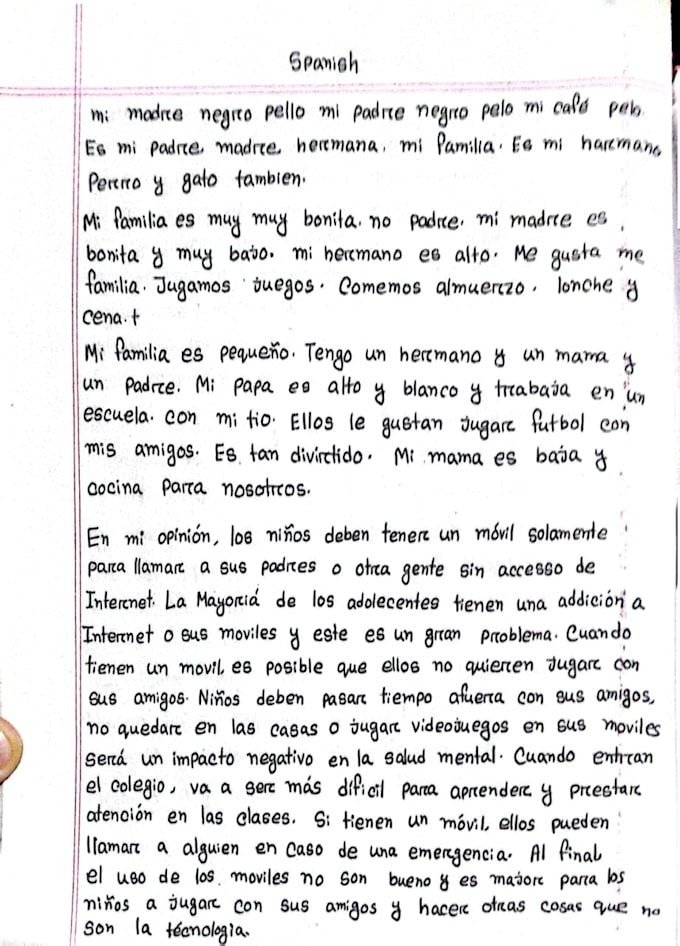 Spanish
mi madre negro pello mi padre negro pelo mi café pelo
Es mi padre, madre, hermana, mi familia. Es mi harmano,
Perrro y gato tambien.
Mi familia es muy muy bonita. no padre. mi madre es
bonita y muy bajo. mi hermano es alto. Me gusta me
familia. Jugamos juegos. Comemos almuerzo. lonche y
cena.t
Mi familia es pequeño. Tengo un hermano y un mama y
un padre. Mi papa es alto y blanco y trabaja en un
escuela. con mi tio. Ellos le gustan jugar futbol con
mis amigos. Es tan divirtido. Mi mama es baja y
cocina para nosotros.
En mi opinión, los niños deben tener un móvil solamente
para llamar a sus padres o otra gente sin accesso de
Internet. La Mayoriá de los adolecentes tienen una addición a
Internet o sus moviles y este es un gran problema. Cuando
tienen un movil, es posible que ellos no quieren jugar con
sus amigos. Niños deben pasar tiempo afuera con sus amigos,
no quedar en las casas o jugar videojuegos en sus moviles
será un impacto negativo en la salud mental. Cuando entran
el colegio, va a ser más dificil para aprender y prestar
atención en las clases. Si tienen un móvil, ellos pueden
llamar a alguien en caso de una emergencia. Al final
el uso de los moviles no son bueno y es major para los
niños a jugar con sus amigos y hacer otras cosas que no
son la técnologia.